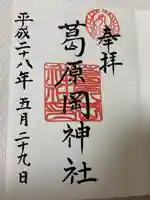 奉拝
葛原岡神社
平成二十八年 五月二十九日